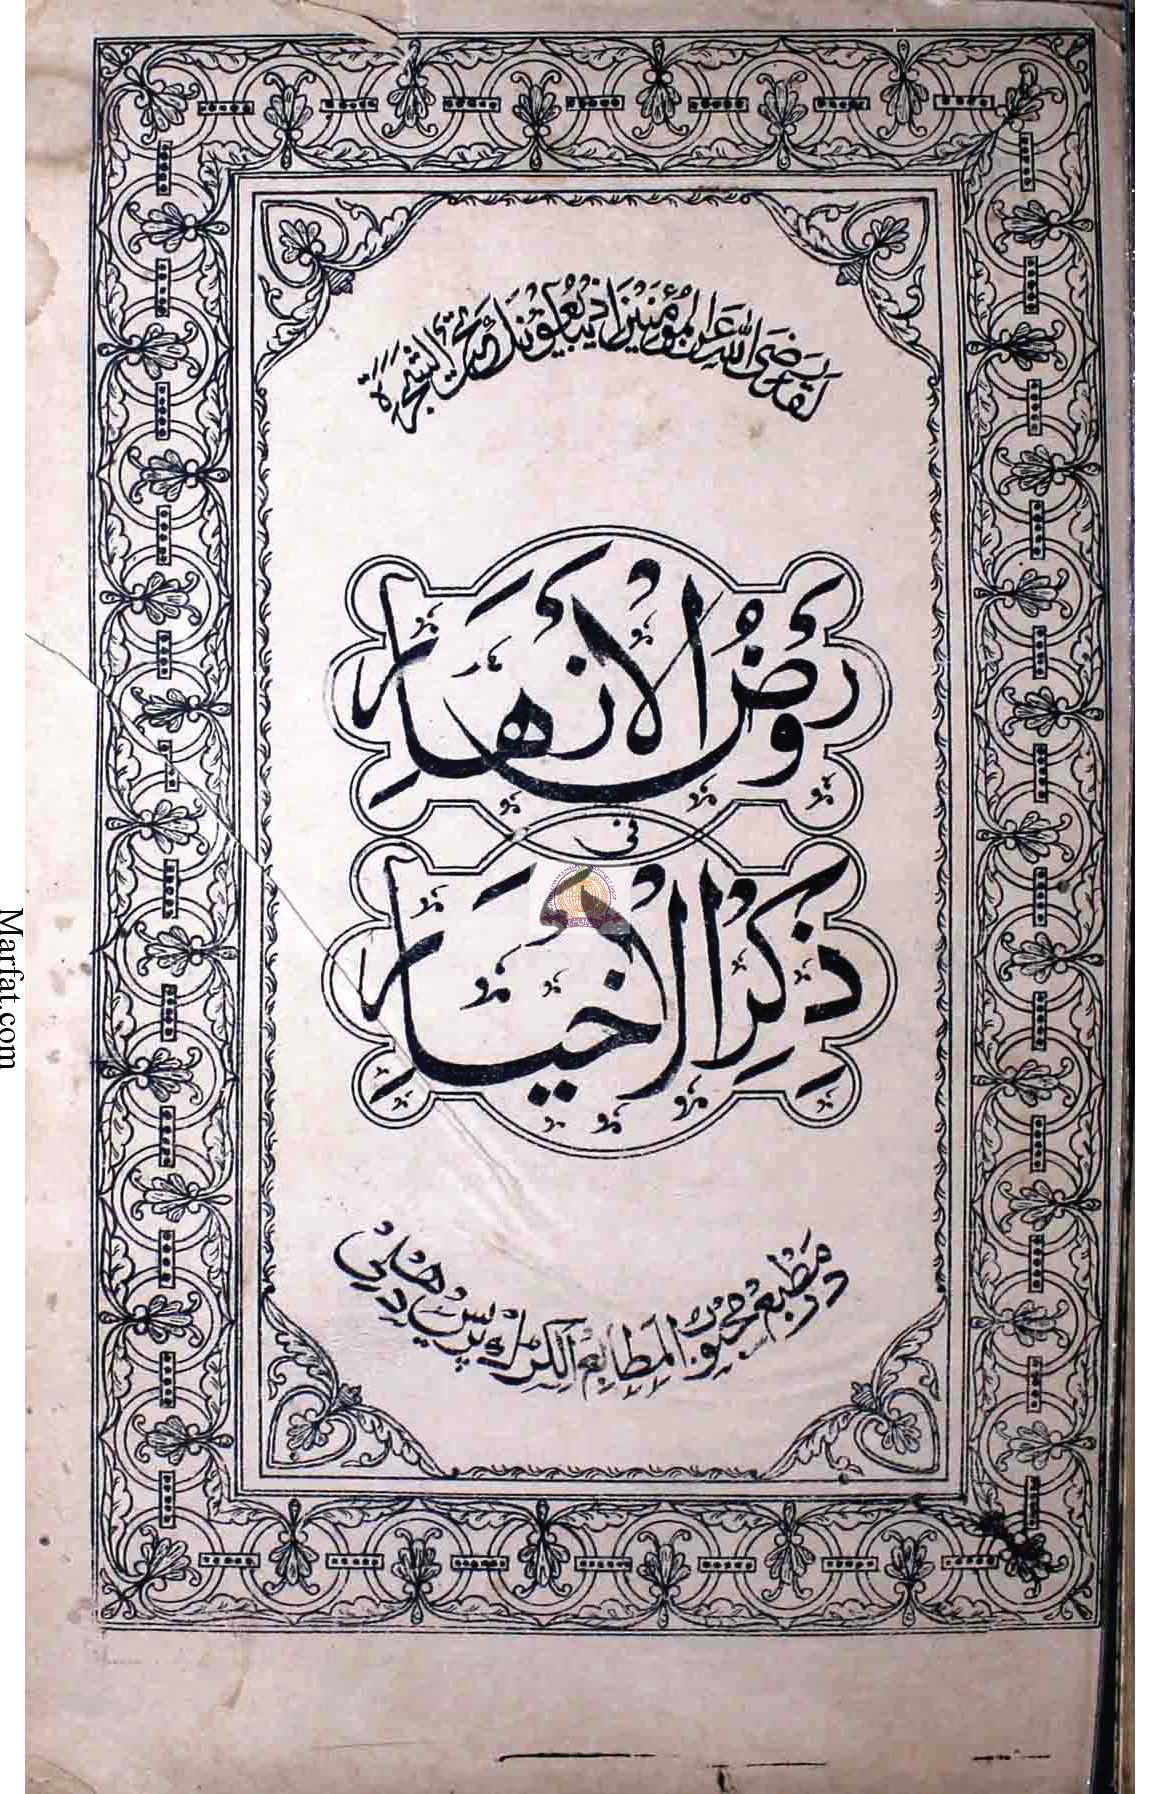 لَقَدْ رَضِیَ اللّٰهُ عَنِ الْمُؤْمِنِیْنَ اِذْ یُبَایِعُوْنَكَ تَحْتَ الشَّجَرَةِ
رَوْضُ الْاَزْهَارِ
فی
ذِکْرِ الْاَخْیَارِ
در مطبع محبوب المطابع الکٹرک پریس دہلی
Marfat.com